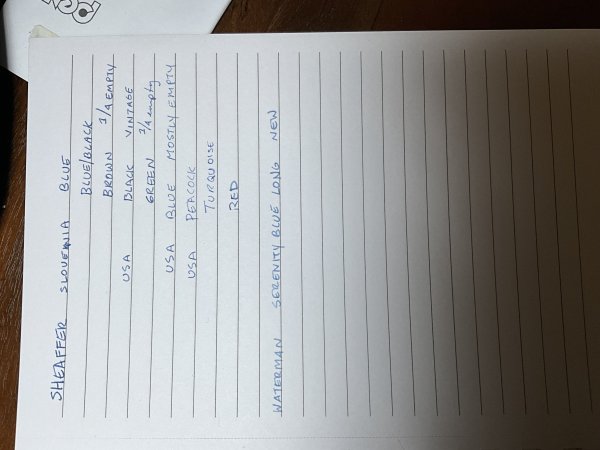 SHEAFFER SLOVENIA BLUE
BLUE/BLACK
BROWN 1/4 EMPTY
USA BLACK VINTAGE
GREEN 1/4 empty
USA BLUE MOSTLY EMPTY
USA PEACOCK
TURQUOISE
RED
WATERMAN SERENITY BLUE LONG NEW